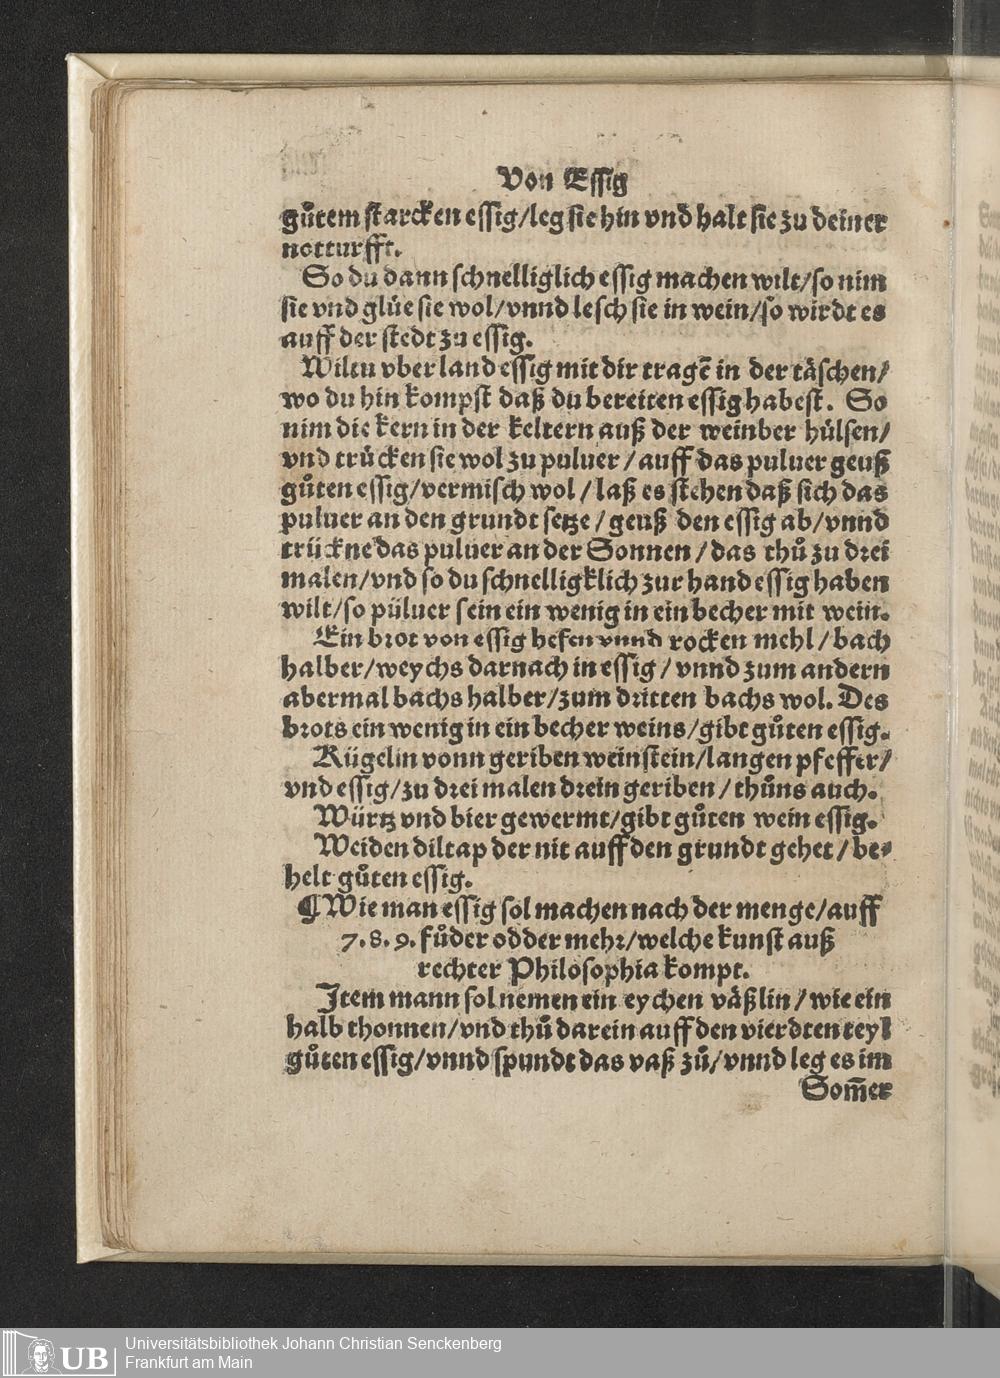 Von Essig
gůtem starcken essig/leg sie hin vnd halt sie zu deiner
notturfft.
So du dann schnelliglich essig machen wilt/so nim
sie vnd glüe sie wol/vnnd lesch sie in wein/so wirdt es
auff der stedt zu essig.
Wiltu vber land essig mit dir tragē in der täschen/
wo du hin kompst daß du bereiten essig habest. So
nim die kern in der keltern auß der weinber hülsen/
vnd trücken sie wol zu puluer/auff das puluer geuß
gůten essig/vermisch wol/laß es stehen daß sich das
puluer an den grundt setze/geuß den essig ab/vnnd
trückne das puluer an der Sonnen/das thů zu drei
malen/vnd so du schnelligklich zur hand essig haben
wilt/so püluer sein ein wenig in ein becher mit wein.
Ein brot von essig hefen vnnd rocken mehl/bach
halber/weychs darnach in essig/vnnd zum andern
abermal bachs halber/zum dritten bachs wol. Des
brots ein wenig in ein becher weins/gibt gůten essig.
Kügelin vonn geriben weinstein/langen pfeffer/
vnd essig/zu drei malen drein geriben/thůns auch.
Würtz vnd bier gewermt/gibt gůten wein essig.
Weiden diltap der nit auff den grundt gehet/be-
helt gůten essig.
¶ Wie man essig sol machen nach der menge/auff
7.8.9. fůder odder mehr/welche kunst auß
rechter Philosophia kompt.
Item mann sol nemen ein eychen väßlin/wie ein
halb thonnen/vnd thů darein auff den vierdten teyl
gůten essig/vnnd spundt das vaß zů/vnnd leg es im
Som̄er
UB
Universitätsbibliothek Johann Christian Senckenberg
Frankfurt am Main